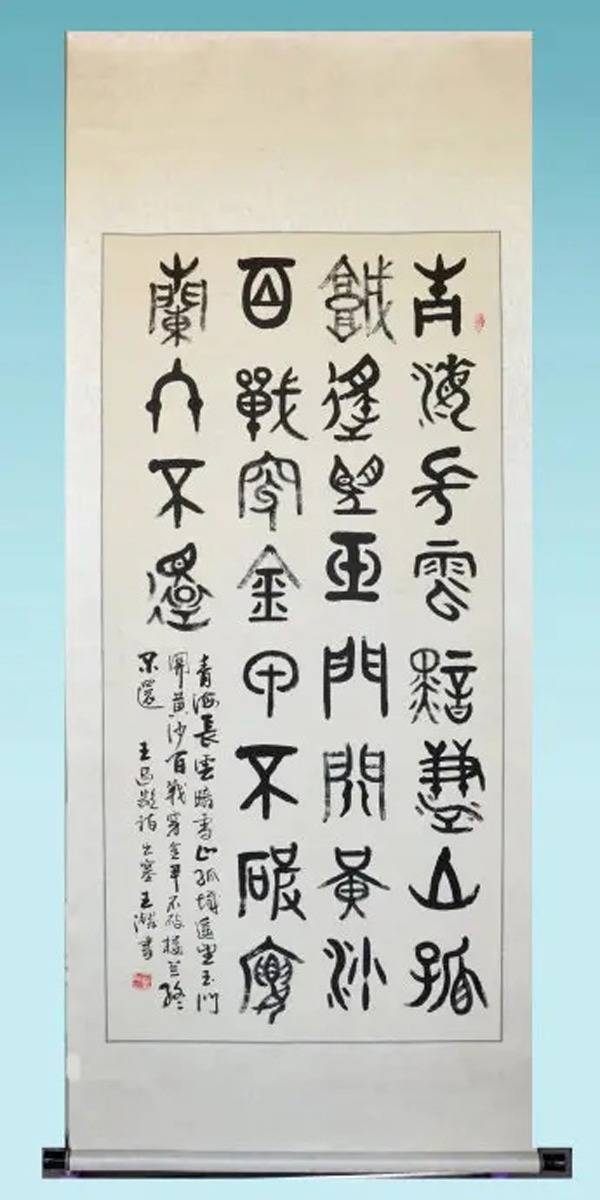 青海長雲黯雪山孤
城遙望玉門關黃沙
百戰穿金甲不破樓
蘭終不還
青海長雲暗雪山孤城遙望玉門
關黃沙百戰穿金甲不破樓兰終
不還 王昌齡詩出塞 王書